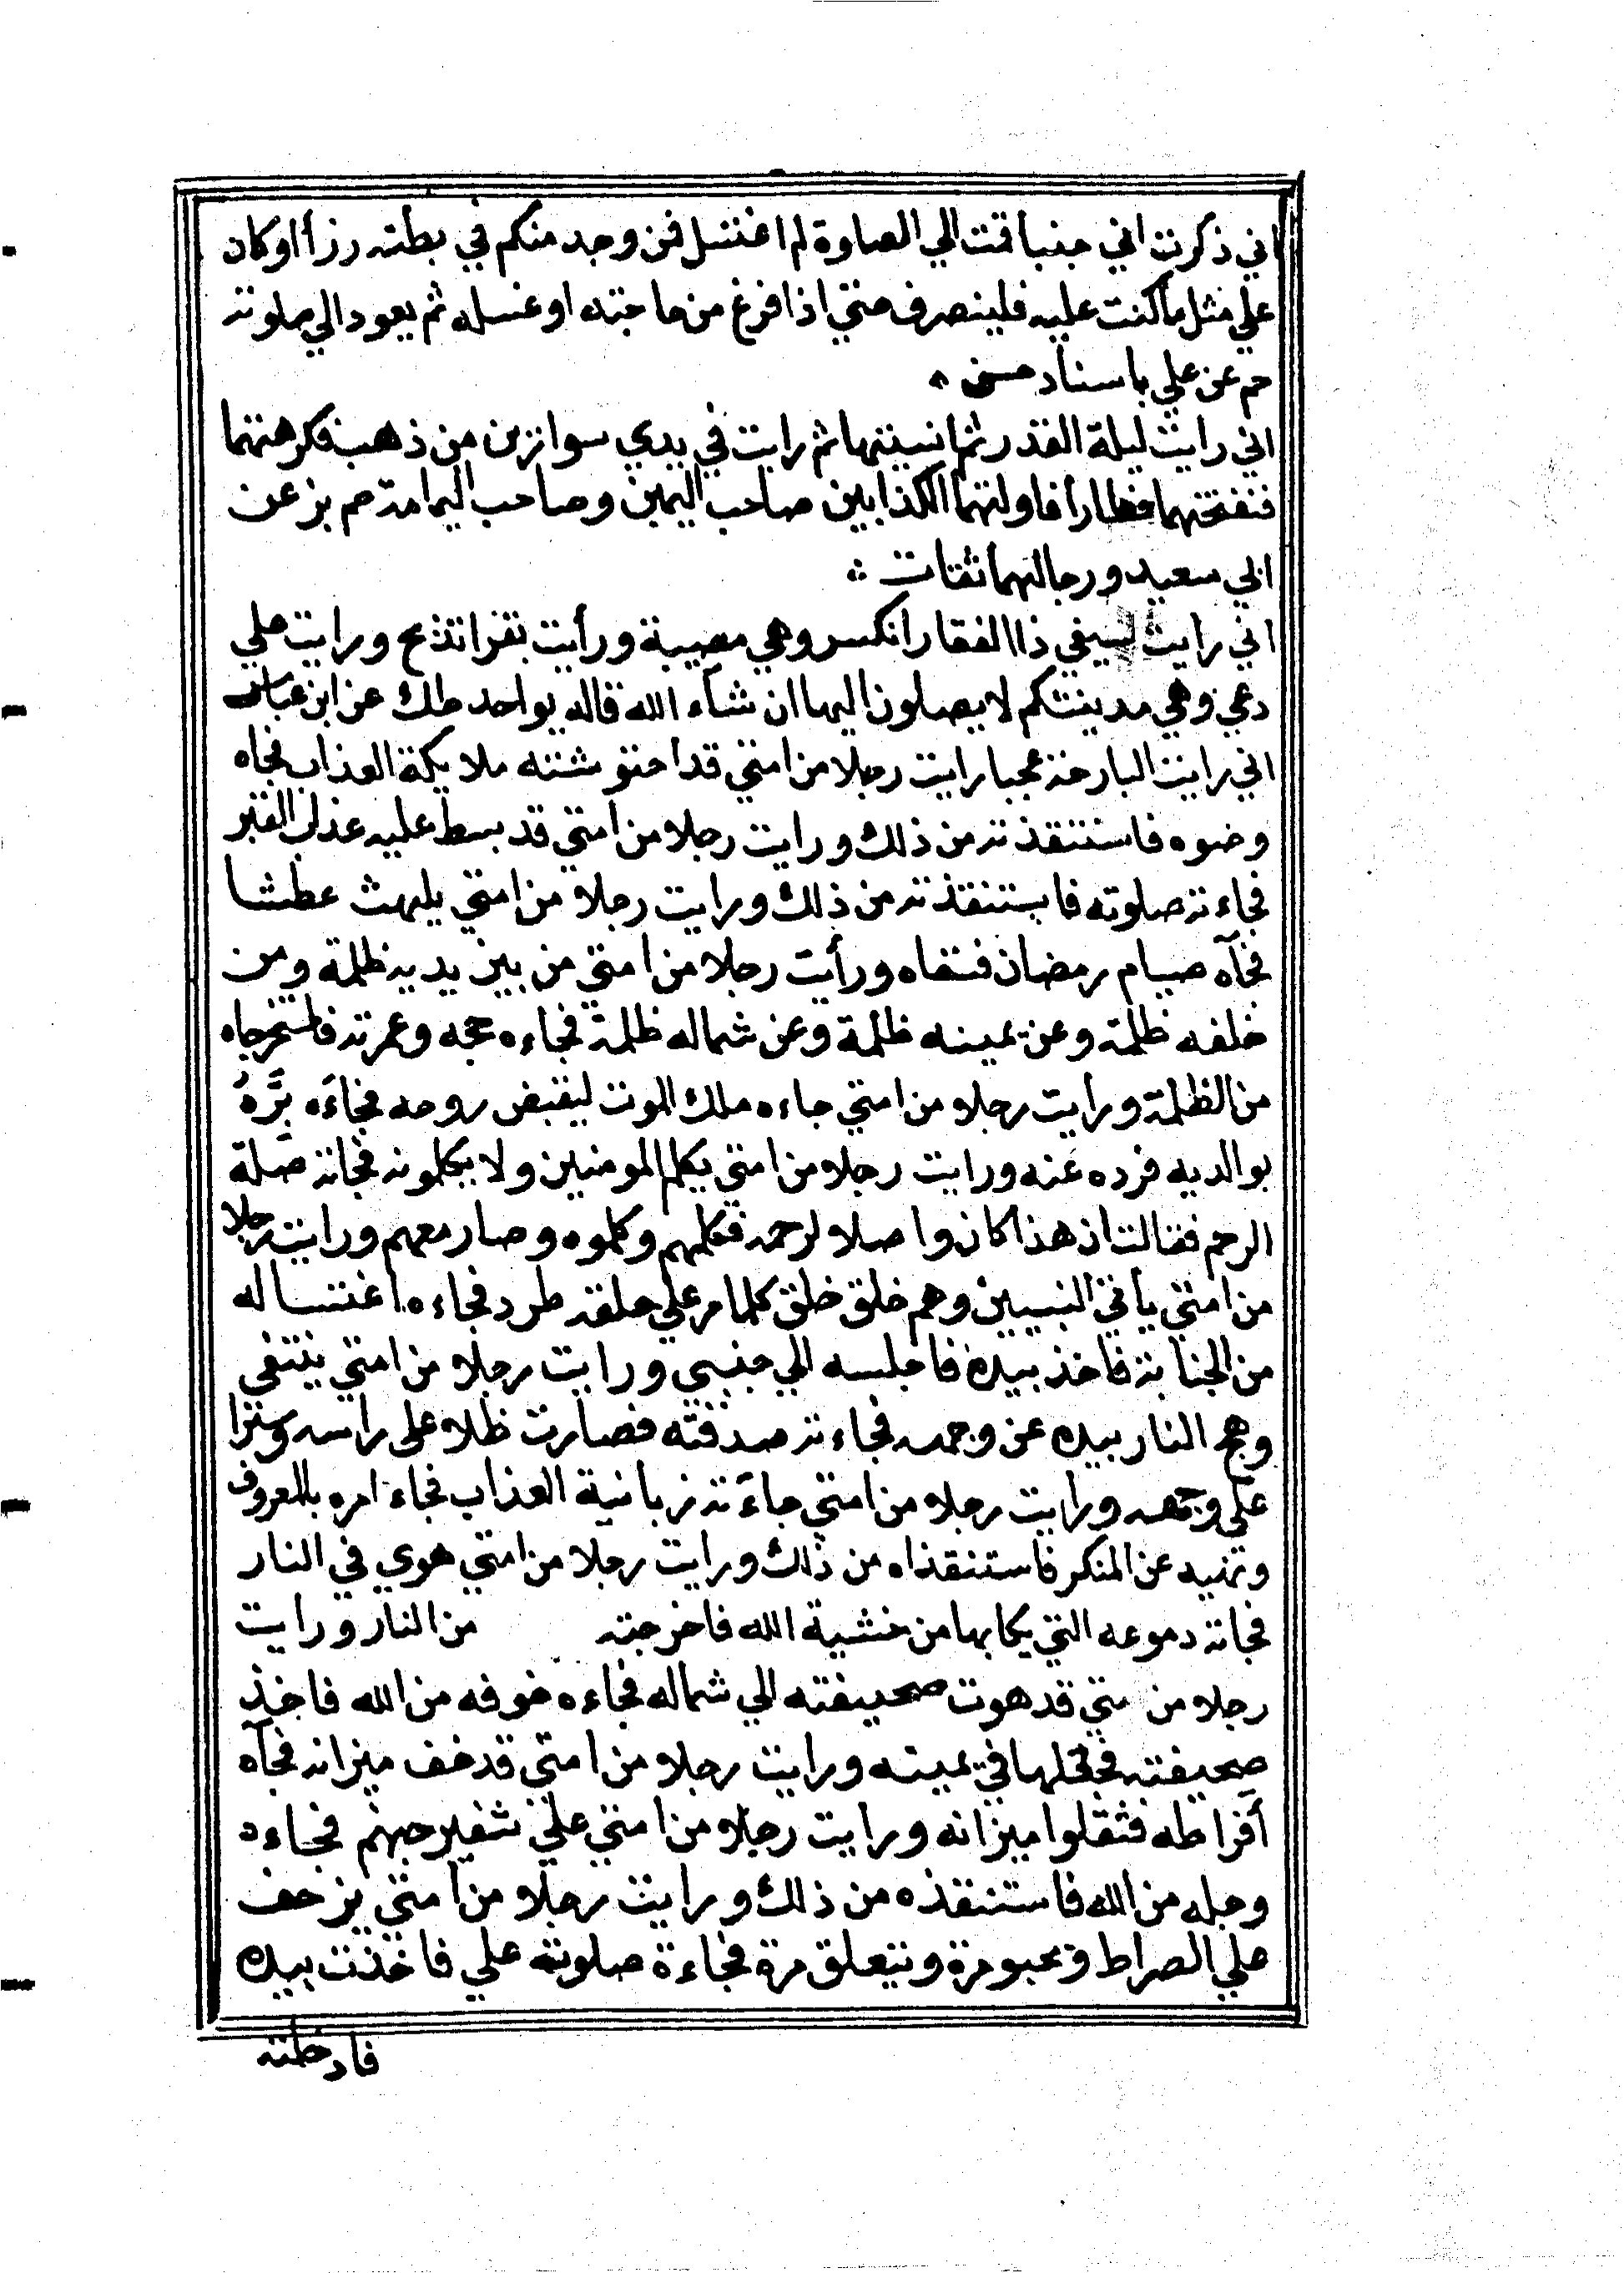 اني ذكرت اني جنبا قمت الي الصلوة لم اغتسل فمن وجد منكم في بطنه رزأ اوكان
علي مثل ما كنت عليه فلينصرف حتي اذا فرغ من حاجته او غسله ثم يعود الي صلوته
حم عن علي باسناد حسن
اني رايت ليلة القدر ثم انسيتها ثم رايت في يدي سوارين من ذهب فكرهتهما
فنفختهما فطارا فاولتهما الكذابين صاحب اليمن وصاحب اليمامة حم بز عن
ابي سعيد ورجالهما ثقات
اني رايت لسيفي ذا الفقار انكسر وهي مصيبة ورأيت بقرا تذبح ورايت علي
دعي وهي مدينتكم لا يصلون اليها ان شاء الله قاله يو احد طك عن ابن عباس
اني رايت البارحة عجبا رايت رجلا من امتي قد احتوشته ملايكة العذاب فجاه
وضوه فاستنقذته من ذلك ورايت رجلا من امتي قد بسط عليه عذاب القبر
فجاءته صلوته فاستنقذته من ذلك ورايت رجلا من امتي يلهث عطشا
فجآه صيام رمضان فسقاه ورأيت رجلا من امتي من بين يديه ظلمة ومن
خلفه ظلمة وعن يمينه ظلمة وعن شماله ظلمة فجاءه حجه وعمرته فاستخرجاه
من الظلمة ورأيت رجلا من امتي جاءه ملك الموت ليقبض روحه فجاءه برّه
بوالديه فرده عنه ورايت رجلا من امتي يكلم المومنين ولا يكلمونه فجاته صلة
الرحم فقالت ان هذا كان واصلا لرحمه فكلمهم وكلموه وصار معهم ورايت رجلا
من امتي يأتي النبيين وهم حلق حلق كلما مر علي حلقة طرد فجاءه اغتساله
من الجنابة فاخذ بيده فاجلسه الي جنبي ورايت رجلا من امتي يتقي
وهج النار بيده عن وجهه فجاءته صدقته فصارت ظلا على راسه وسترا
علي وجهه ورايت رجلا من امتي جاءته زبانية العذاب فجاء امره بالمعروف
ونهيه عن المنكر فاستنقذاه من ذلك ورايت رجلا من امتي هوي في النار
فجاته دموعه التي بكا بها من خشية الله فاخرجته من النار ورايت
رجلا من متي قد هوت صحيفته الي شماله فجاءه خوفه من الله فاخذ
صحيفته فجعلها في يمينه ورايت رجلا من امتي قد خف ميزانه فجآه
أفراطه فثقلوا ميزانه ورايت رجلا من امتي علي شفير جهنم فجاءه
وجله من الله فاستنقذه من ذلك ورايت رجلا من امتي يزحف
علي الصراط ويحبو مرة ويتعلق مرة فجاءة صلوته علي فاخذت بيده
فادخلته